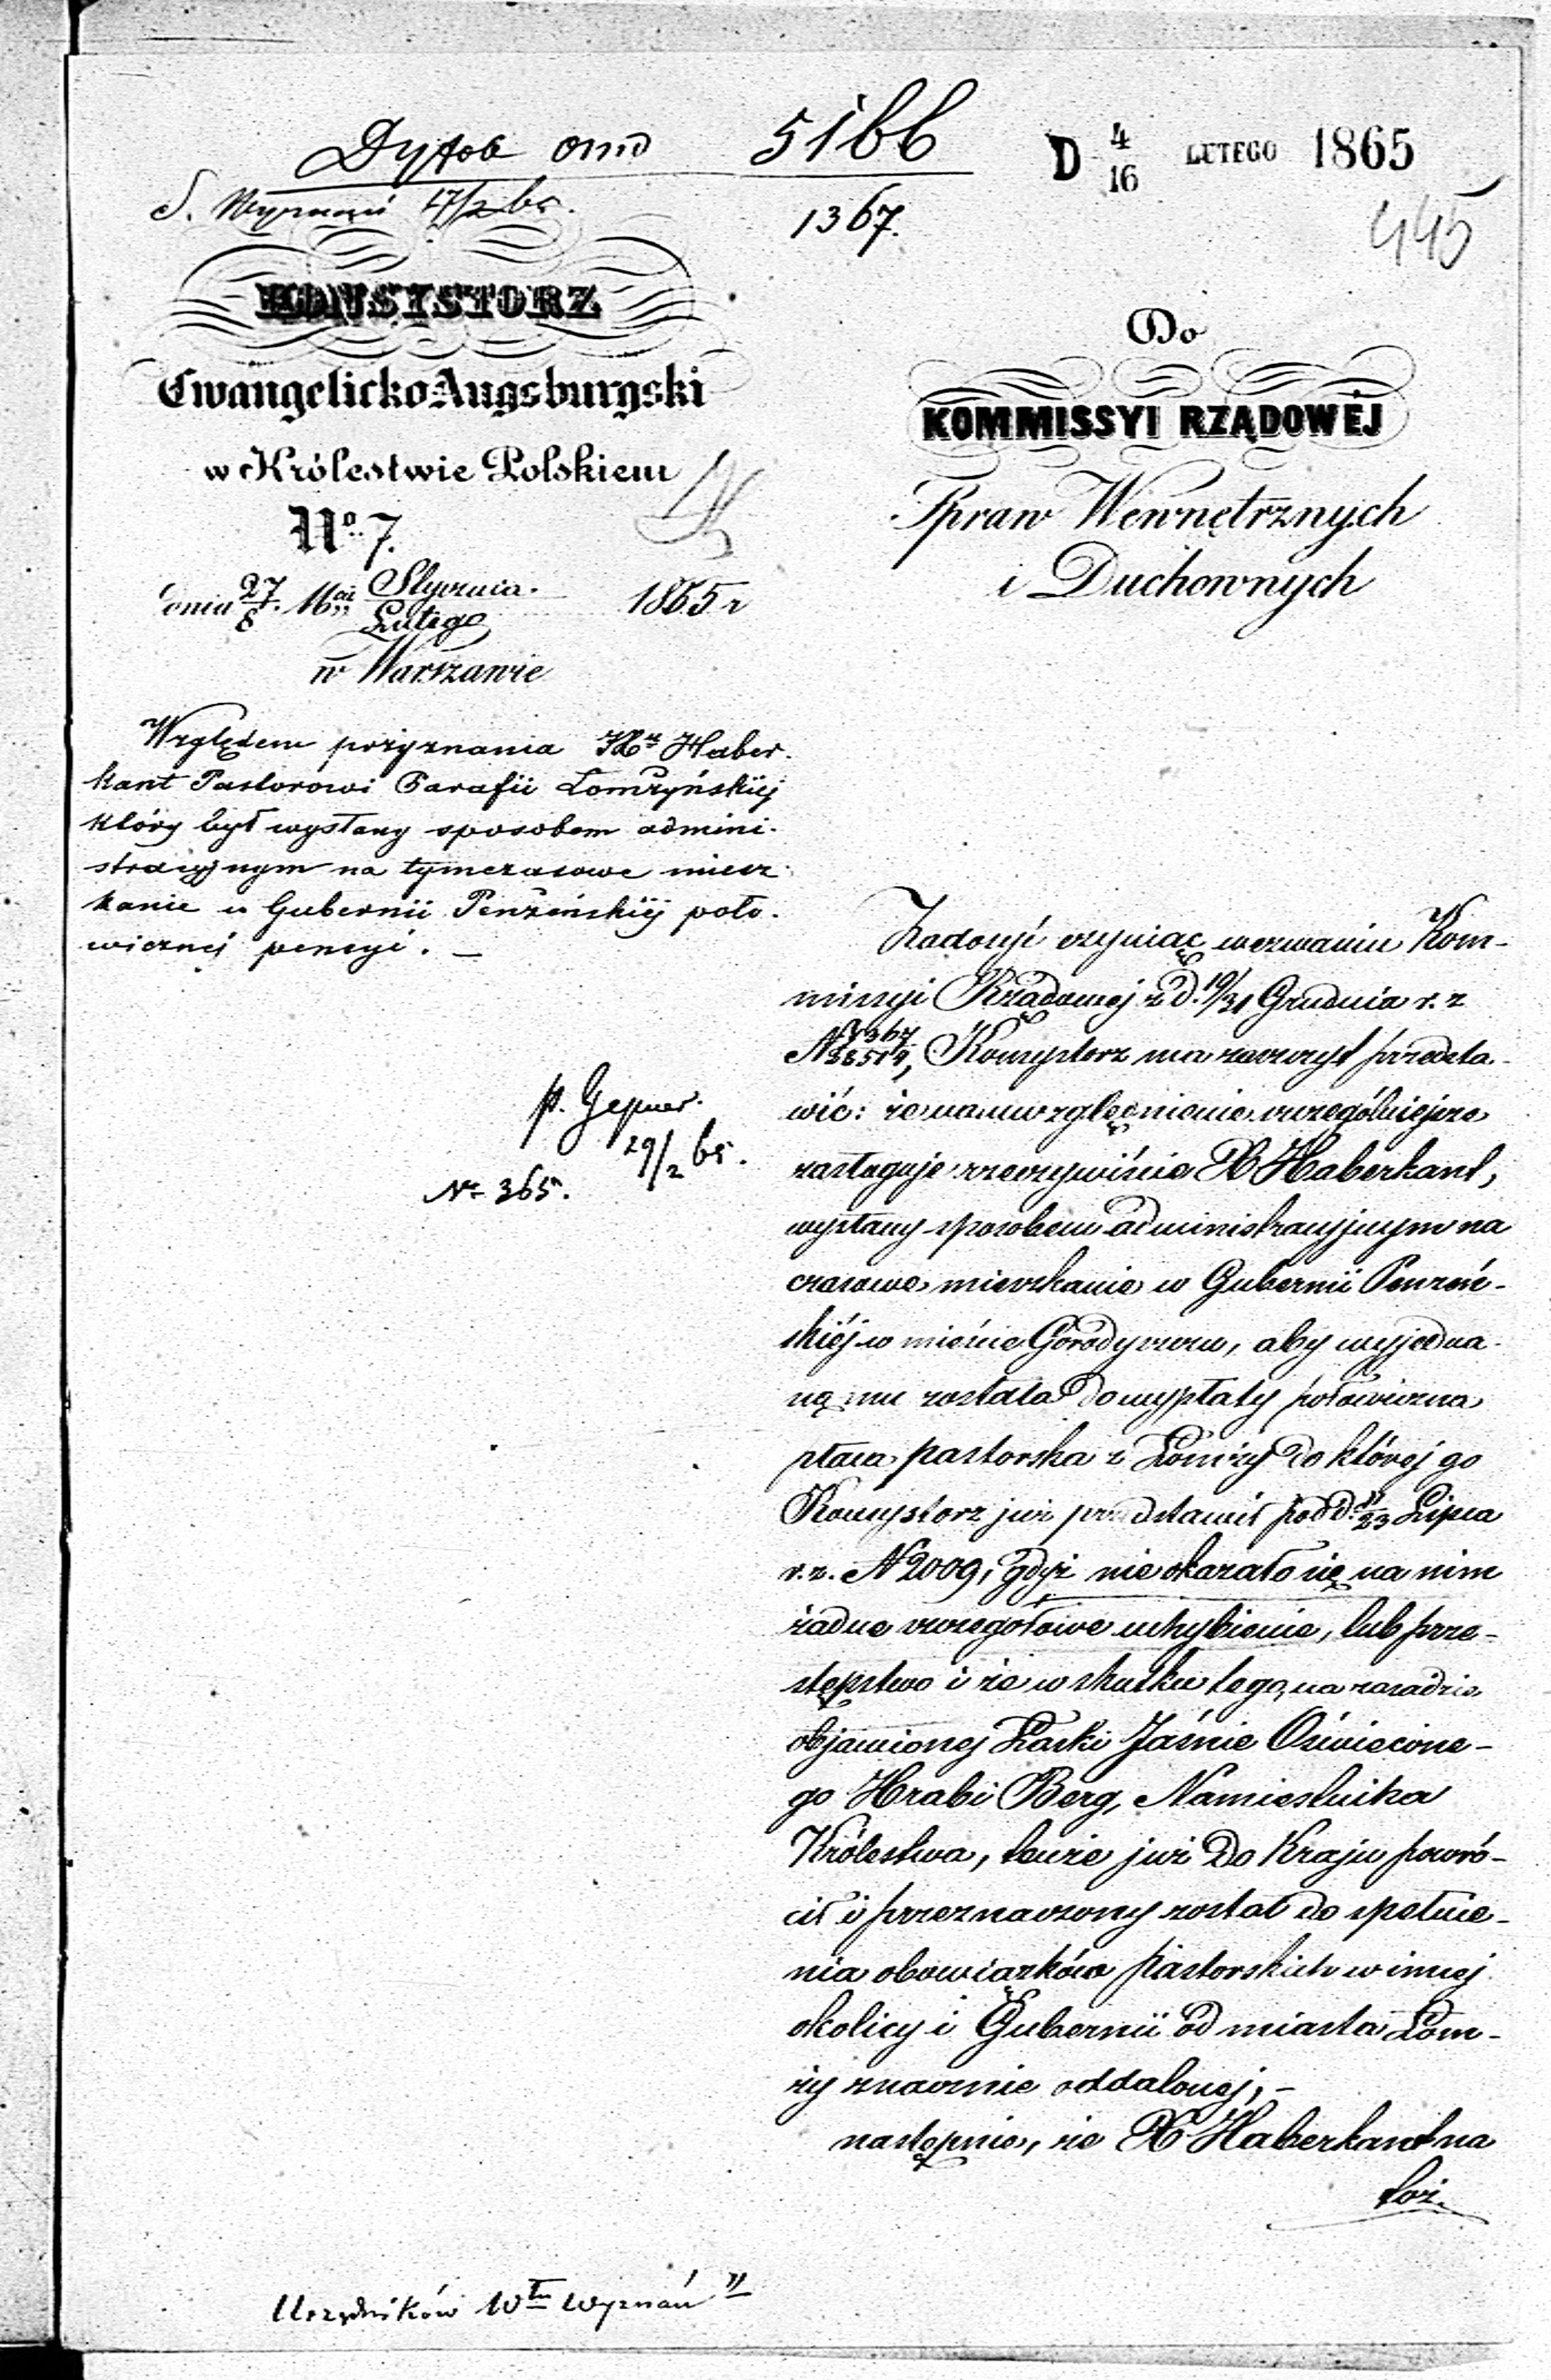 5166
1367.
D 4/16 LUTEGO 1865
445
S. Wyznań 17/2 65.
KONSYSTORZ
Ewangelicko-Augsburgski
w Królestwie Polskiem
No 7.
dnia 27/8 Stycznia/Lutego 1865 r
w Warszawie
Względem przyznania Xu Haber-
kant Pastorowi Parafii Łomżyńskiéj
który był wysłany sposobem admini-
stracyjnym na tymczasowe miesz-
kanie w Gubernii Penzeńskiéj poło-
wicznéj pensyi. —
p. Gepner.
29/2 65.
No 365.
Do
KOMMISSYI RZĄDOWÉJ
Spraw Wewnętrznych
i Duchownych
Zadosyć czyniąc wezwaniu Kom-
missyi Rządowej z d. 19/31 Grudnia r. z
N, Konsystorz ma zaszczyt przedsta-
wić: że na uwzględnienie szczególniejsze
zasługuje rzeczywiście X Haberkant,
wysłany sposobem administracyjnym na
czasowe mieszkanie w Gubernii Penzeń-
skiéj w mieście Gorodyszczu, aby wyjedna-
ną mu została do wypłaty połowiczna
płaca pastorska z Łomży do której go
Konsystorz już przedstawił pod d. 11/23 Lipca
r. z. N 2009, gdyż nie okazało się na nim
żadne szczegółowe uchybienie, lub prze-
stępstwo i że w skutku tego, na zasadzie
objawionej Łaski Jaśnie Oświecone-
go Hrabi Berg, Namiestnika
Królestwa, tenże już do Kraju powró-
cił i przeznaczony został do spełnie-
nia obowiązków pastorskich w innej
okolicy i Gubernii od miasta Łom-
ży znacznie oddalonej, –
następnie, że X Haberkant na
też.
Urzędników Włu Wyznań